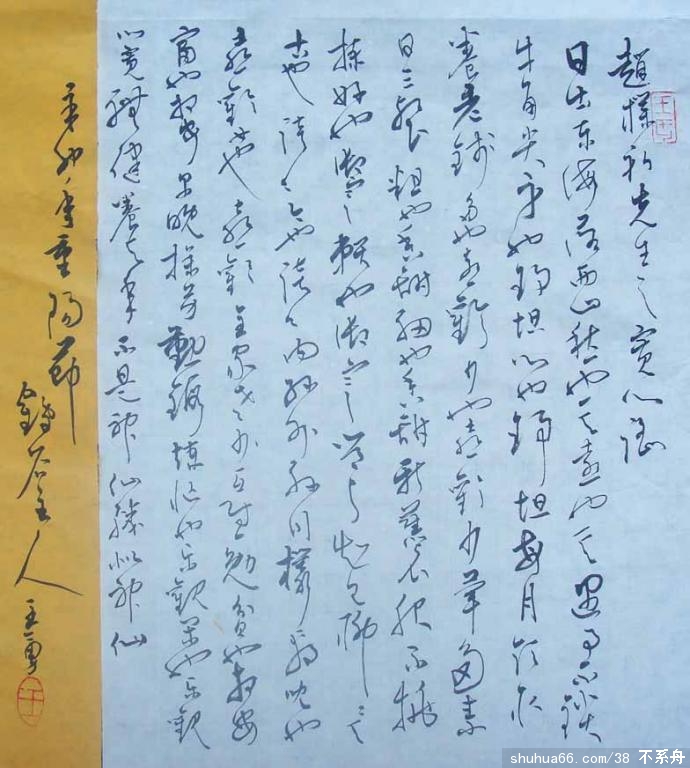 趙樸初先生之寬心谣
日出东海落西山愁也一天喜也一天遇事不鑽
牛角尖身也舒坦心也舒坦每月领取
養老錢多也喜歡少也喜歡少葷多素
日三餐粗也香甜細也香甜新舊衣服不挑
揀好也御寒賴也御寒常与知己聊聊天
古也談談今也談談内孫外孫同樣也
喜歡女也喜歡全家老少互慰勉貧也相安
富也相安早晚操勞勤鍛煉忙也乐觀閒也乐觀
心寬體健養天年不是神仙勝似神仙
辛卯年重陽節
主人
王勇
shuhua66.com/38 不系舟